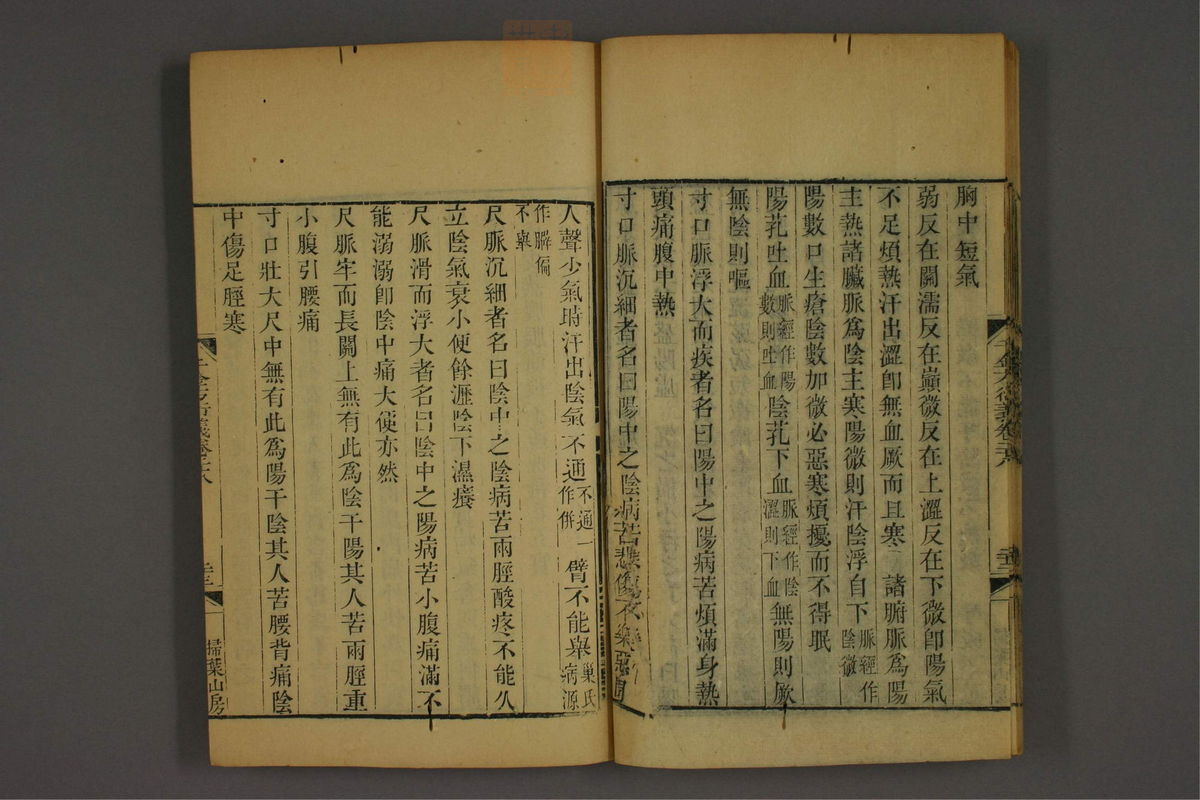 胸中短氣
弱反在關濡反在巔微反在上澀反在下微卽陽氣
不足煩熱汗出澀卽無血厥而且寒　諸腑脈爲陽
主熱諸臟脈爲陰主寒陽微則汗陰浮自下脈經作陰微
陽數口生瘡陰數加微必惡寒煩擾而不得眠
陽芤吐血脈經作陽數則吐血陰芤下血脈經作陰澀則下血無陽則厥
無陰則嘔
寸口脈浮大而疾者名曰陽中之陽病苦煩滿身熱
頭痛腹中熱
寸口脈沉細者名曰陽中之陰病苦悲傷不樂惡聞
人聲少氣時汗出陰氣不通不通一作併臂不能舉巢氏病源
作臂偏不舉
尺脈沉細者名曰陰中之陰病苦兩脛酸疼不能久
立陰氣衰小便餘瀝陰下濕癢
尺脈滑而浮大者名曰陰中之陽病苦小腹痛滿不
能溺溺卽陰中痛大便亦然
尺脈牢而長關上無有此爲陰干陽其人苦兩脛重
小腹引腰痛
寸口壯大尺中無有此爲陽干陰其人苦腰背痛陰
中傷足脛寒
掃葉山房